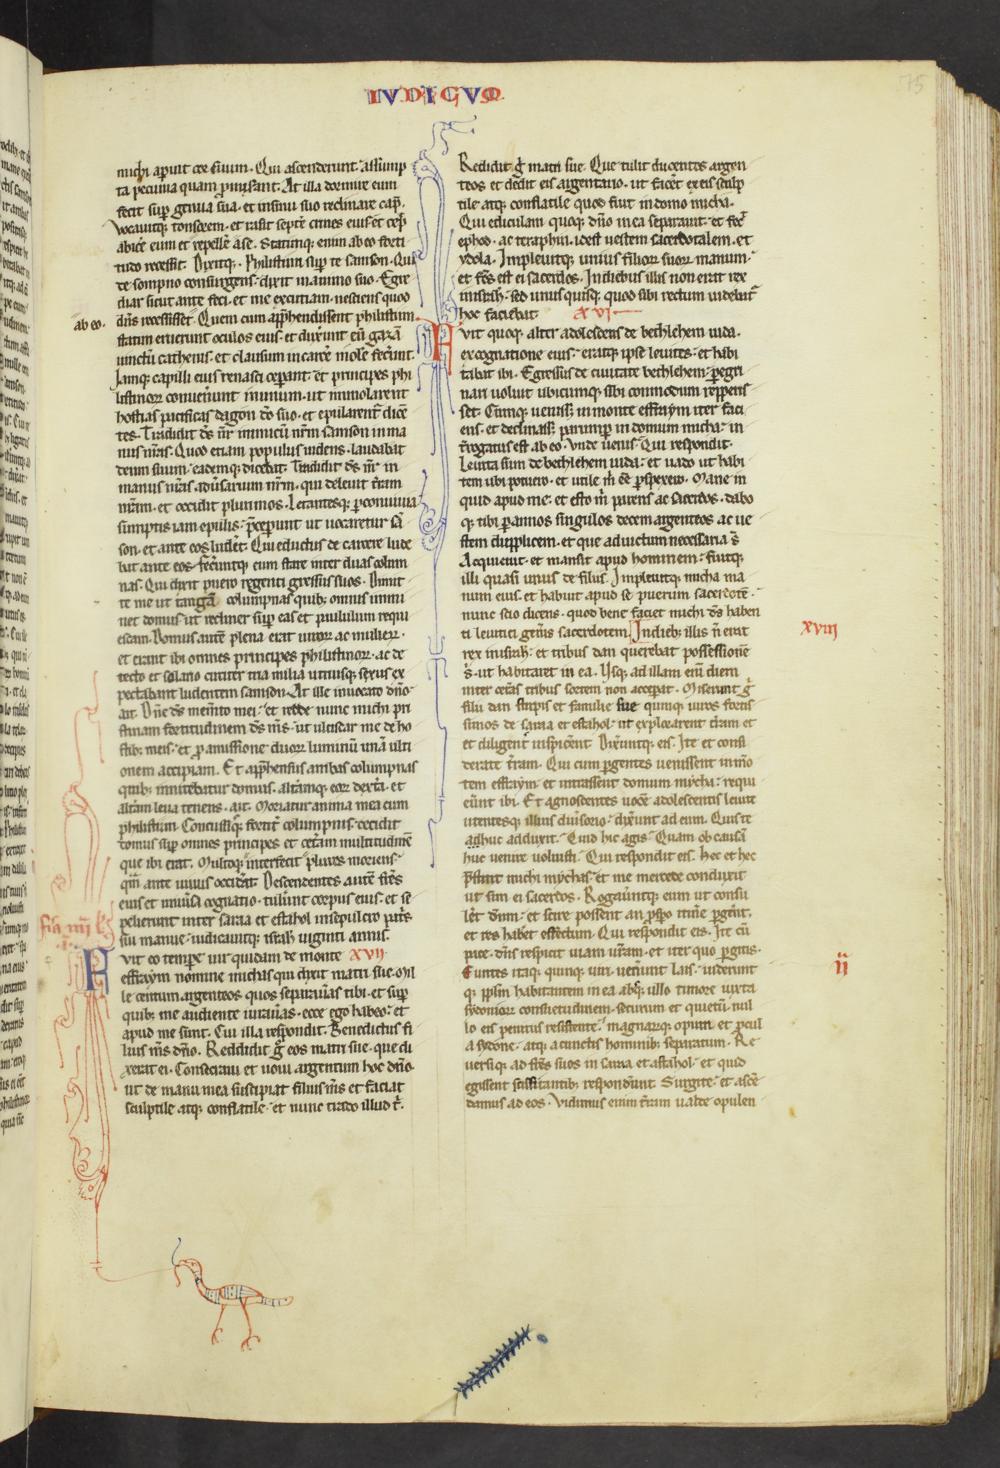 IUDICUM
75
michi aperuit cor suum. Qui ascenderunt assump
ta pecunia quam promisant. At illa dormire eum
fecit sup genua sua. et in sinu suo reclinare cap.
vocauitq; tonsorem. et rasit septe crines eius et cep
abice eum et repelle a se. Statimq; enim ab eo forti
tudo recessit. Dixitq;. Philistiim sup te samson. Qui
de sompno consurgens. dixit in animo suo. Egre
diar sicut ante feci. et me excutiam. nesciens quod
ab eo.
dns recessisset. Quem cum apphendissent philistiim.
statim eruerunt oculos eius. et duxunt eu gazā
uinctu cathenis. et clausum in carce mole fecunt.
Iamq; capilli eius renasci ceperant. et principes phi
listinor conuenunt in unum. ut immolarent
hostias pacificas dagon do suo. et epularent dice
tes. Tradidit ds nr inimicu nrm samson in ma
nus nras. Quod etiam populus uidens. laudabat
deum suum. eademq; dicebat. Tradidit ds nr in
manus nras. aduersarium nrm. qui deleuit tram
nram. et occidit plurimos. Letantesq; p conuiuia
sumptis iam epulis. pcepunt ut uocaretur sā
son. et ante eos ludet. Qui eductus de carcere lude
bat ante eos. fecuntq; eum stare inter duas colum
nas. Qui dixit puero regenti gressus suos. Dimit
te me ut tangā columpnas quib; omnis immi
net domus. ut recliner sup eas et paululum requi
escam. Domus aute plena erat uiror ac mulier.
et erant ibi omnes principes philistinor. ac de
tecto et solario circiter tria milia utriusq; sexus ex
pectabant ludentem samson. At ille inuocato dno.
ait. Dne ds memto mei. et redde nunc michi pri
stinam fortitudinem ds ms. ut ulciscar me de ho
stib; meis. et p amissione duor luminu unā ulti
onem accipiam. Et apphensis ambas columpnas
quib; innitebatur domus. altamq; ear dexta. et
altam leua tenens. ait. Moriatur anima mea cum
philistiim. Concussisq; fortit columpnis. cecidit
domus sup omnes principes et cetam multitudinē
que ibi erat. Multoq; interfecit plures moriens.
qm ante uiuus occidat. Descendentes aute fres
eius et uniusa cognatio. tulunt corpus eius. et se
pelierunt inter saraa et estahol in sepulcro patris
sui manue. iudicauitq; israel uiginti annis.
Fuit eo tempe uir quidam de monte xvii
effraym nomine michas qui dixit matri sue. Mil
le centum argenteos quos separauas tibi. et sup
quib; me audiente iurauas. ecce ego habeo. et
apud me sunt. Cui illa respondit. Benedictus fi
lius ms dno. Reddidit g eos matri sue. que di
xerat ei. Consecraui et uoui argentum hoc dno.
ut de manu mea suscipiat filius ms et faciat
sculptile atq; conflatile. et nunc trado illud t.
Reddidit g matri sue. Que tulit ducentos argen
teos et dedit eis argentario. ut facet ex eis sculp
tile atq; conflatile quod fuit in domo micha.
Qui ediculam quoq; dno in ea separauit. et fec
ephod. ac teraphin. idest uestem sacerdotalem. et
ydola. Impleuitq; unius filior suor manum.
et fcs est ei sacerdos. In diebus illis non erat rex
in israh. sed unus quisq; quod sibi rectum uidebat
hoc faciebat. xvi
Fuit quoq; alter adolescens de bethlehem iuda.
ex cognatione eius. eratq; ipse leuites. et habi
tabat ibi. Egressus de ciuitate bethlehem. pegri
nari uoluit ubicumq; sibi commodum repperis
set. Cumq; uenisset in monte effraym iter faci
ens. et declinass parump in domum micha. in
trogatus est ab eo. Unde uenis. Qui respondit.
Leuita sum de bethlehem iuda. et uado ut habi
tem ubi potuero. et utile m ee pspexero. Mane in
quid apud me. et esto m parens ac sacerdos. dabo
q; tibi p annos singulos decem argenteos. ac ue
stem dupplicem. et que ad uictum necessaria s.
Acquieuit. et mansit apud hominem. fuitq;
illi quasi unus de filiis. Impleuitq; micha ma
num eius. et habuit apud se puerum sacerdote.
nunc scio dicens. quod bene faciet michi ds haben
ti leuitici genis sacerdotem. In dieb; illis n erat
xviii
rex in israh. et tribus dan querebat possessione
s. ut habitaret in ea. Usq; ad illam eni diem
inter cetas tribus sortem non accepat. Miserunt g
filii dan stirpis et familie sue quinq; uiros fortis
simos de saraa et estahol. ut explorarent tram et
et diligent inspicent. Dixuntq; eis. Ite et consi
derate tram. Qui cum pgentes uenissent in mo
tem effraym. et intrassent domum mycha. requi
eunt ibi. Et agnoscentes uoce adolescentis leuite
utentesq; illius diuisorio. dixunt ad eum. Quis te
adhuc adduxit. Quid hic agis. Quam ob causā
huc uenire uoluisti. Qui respondit eis. hec et hec
pstitit michi mychas. et me mercede conduxit
ut sim ei sacerdos. Rogauntq; eum ut consu
let dnm. et scire possent an pspo itine pgent.
et res habet effectum. Qui respondit eis. Ite cu
pace. dns respicit uiam uram. et iter quo pgitis.
ii
Euntes itaq; quinq; uiri. uenunt lais. uiderunt
q; pplm habitantem in ea absq; ullo timore iuxta
sydonior consuetudinem. securum et quietu. nul
lo eis penitus resistente. magnarq; opum et pcul
a sydone. atq; a cunctis hominib; separatum. Re
uersiq; ad fres suos in saraa et astahol. et quid
egissent sciscitantib; respondunt. Surgite. et asce
damus ad eos. Vidimus enim tram ualde opulen